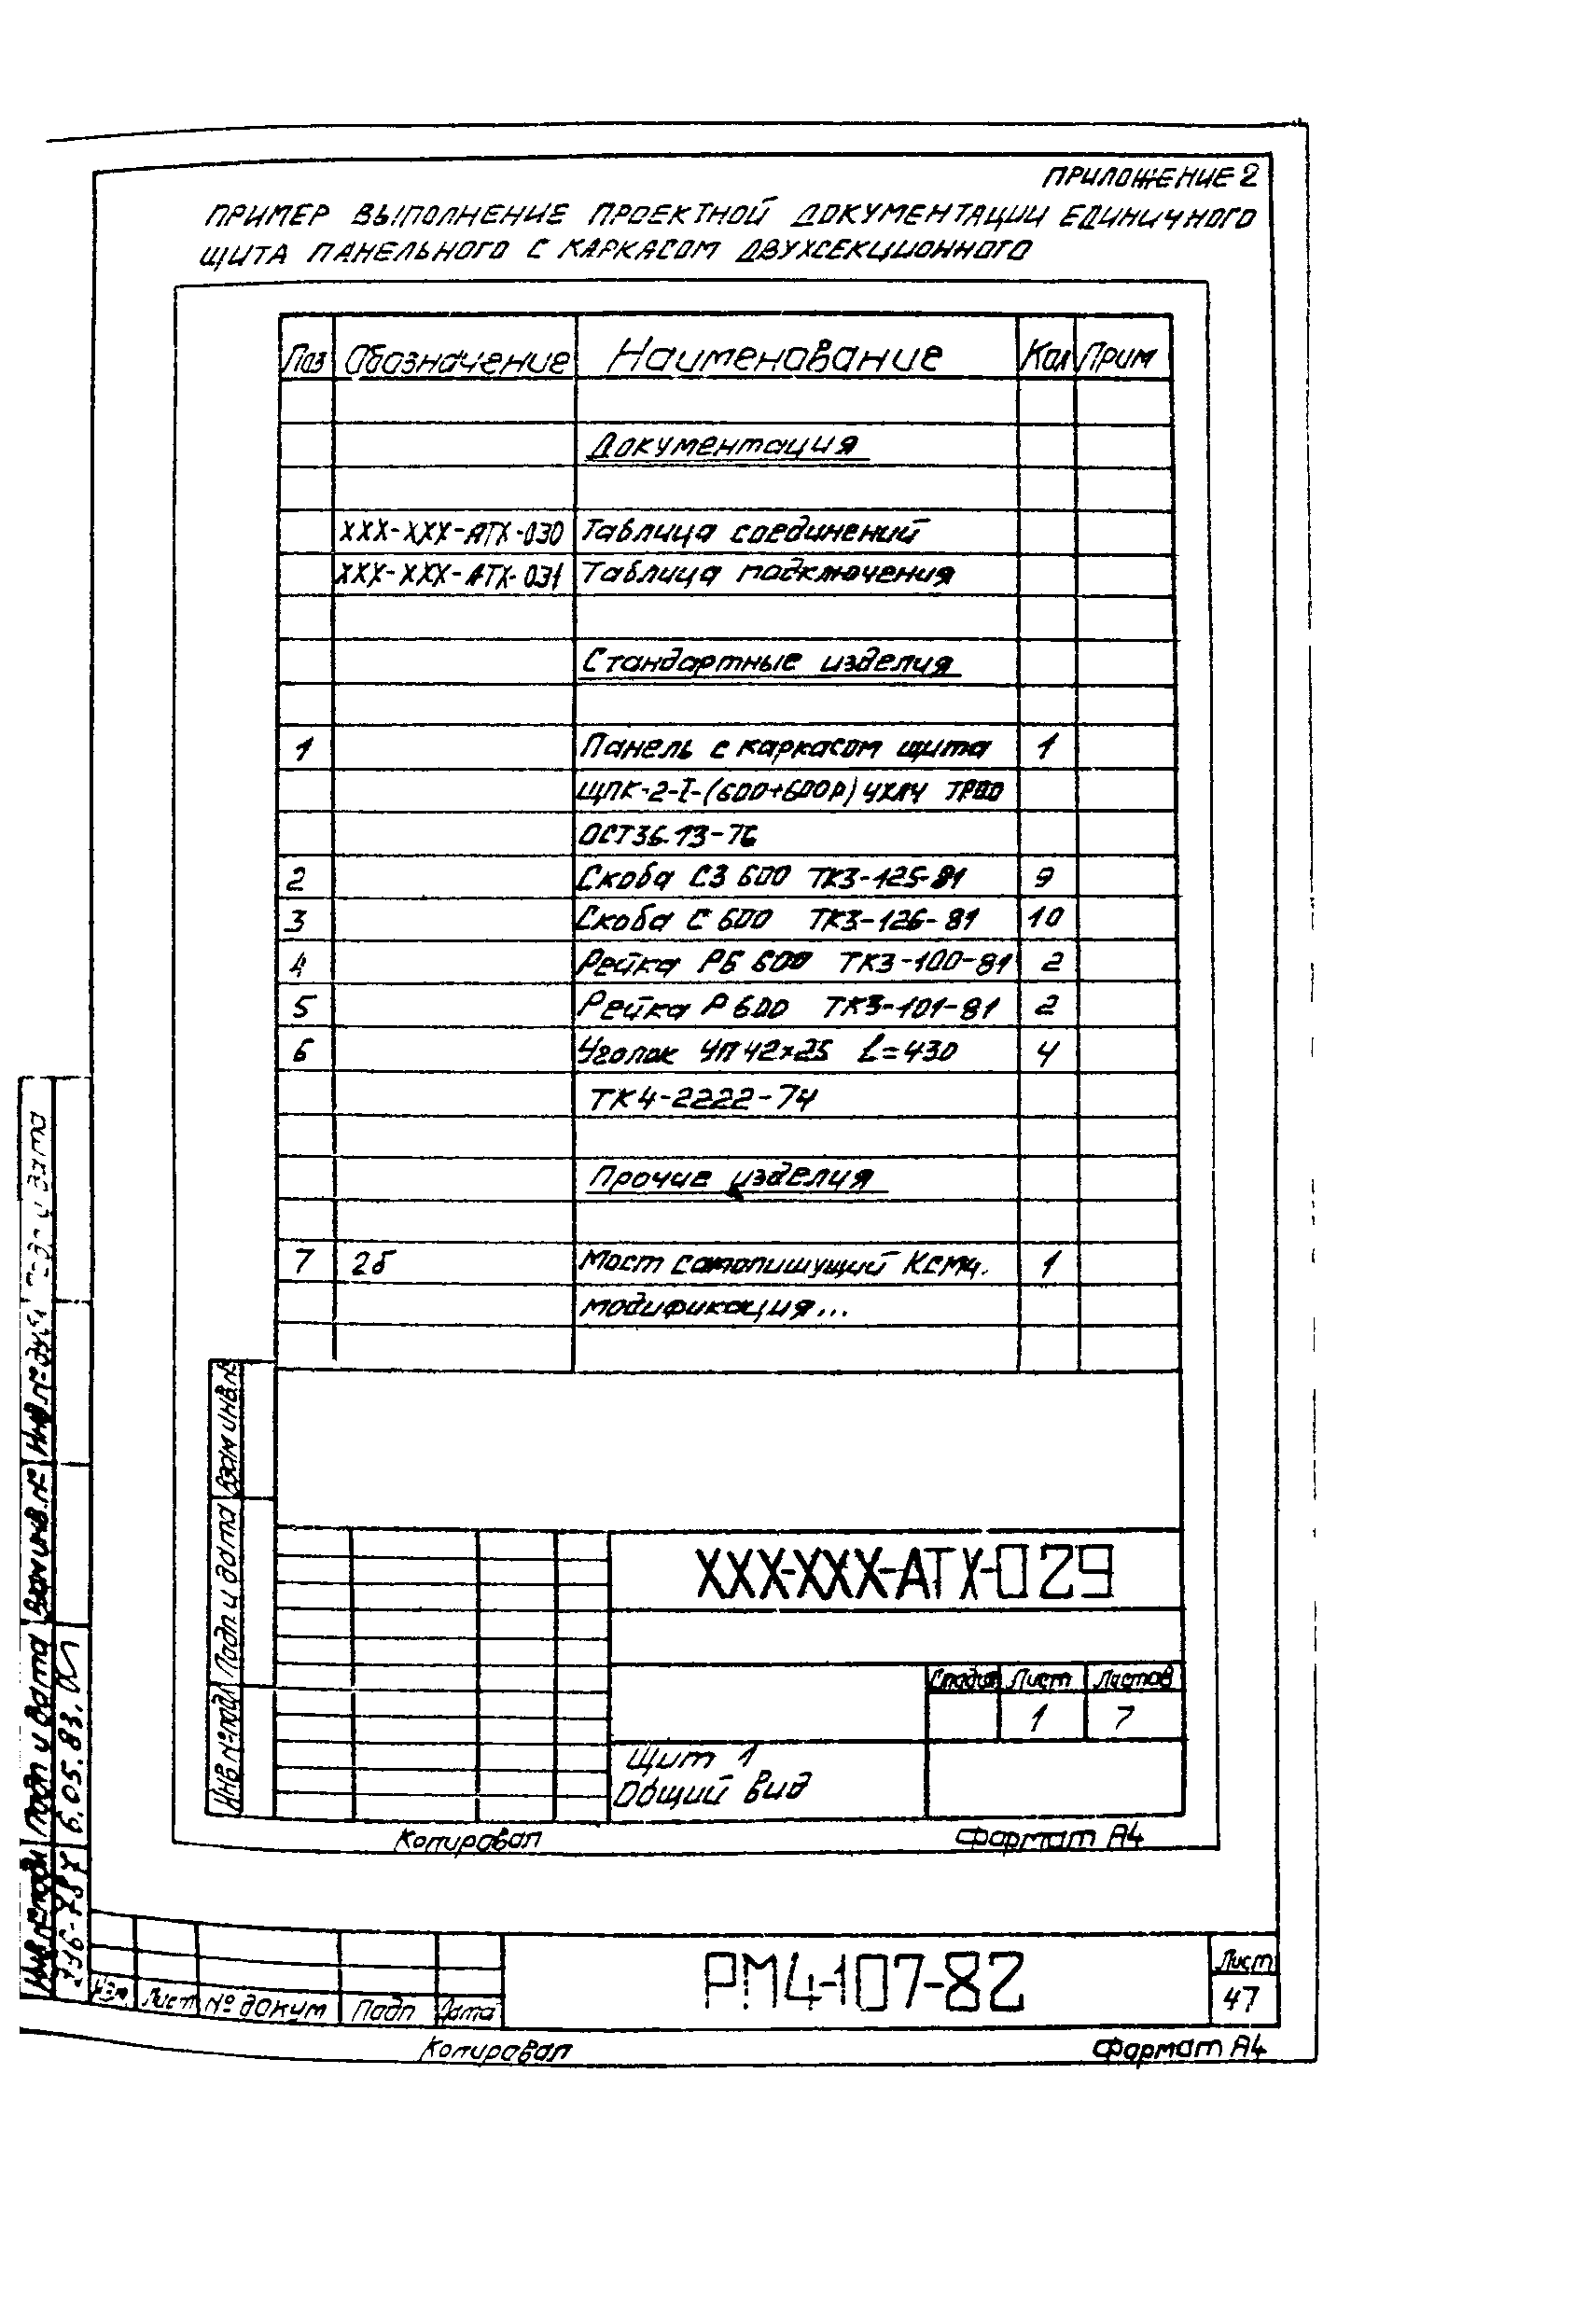 ПРИЛОЖЕНИЕ 2
ПРИМЕР ВЫПОЛНЕНИЕ ПРОЕКТНОЙ ДОКУМЕНТАЦИИ ЕДИНИЧНОГО
ЩИТА ПАНЕЛЬНОГО С КАРКАСОМ ДВУХСЕКЦИОННОГО
Поз Обозначение Наименование Кол Прим
Документация
XXX-XXX-АТХ-030 Таблица соединений
XXX-XXX-АТХ-031 Таблица подключения
Стандартные изделия
1 Панель с каркасом щита 1
ЩПК-2-I-(600+600Р) УХЛ4 ТР00
ОСТ36.13-76
2 Скоба СЗ 600 ТК3-125-81 9
3 Скоба С 600 ТК3-126-81 10
4 Рейка РБ 600 ТК3-100-81 2
5 Рейка Р 600 ТК3-101-81 2
6 Уголок УП 42х25 L=430 4
ТК4-2222-74
Прочие изделия
7 2б Мост самопишущий КСМ4. 1
модификация...
Взам инв.№
Подп и дата
Инв №подл
XXX-XXX-АТХ-029
Стадия Лист Листов
1 7
Щит 1
Общий вид
Копировал Формат А4
Подп и дата
Инв № дубл
Взам инв.№
Подп и дата 6.05.83.
Инв № подл
Изм. Лист № докум Подп Дата
РМ4-107-82
Лист
47
Копировал Формат А4